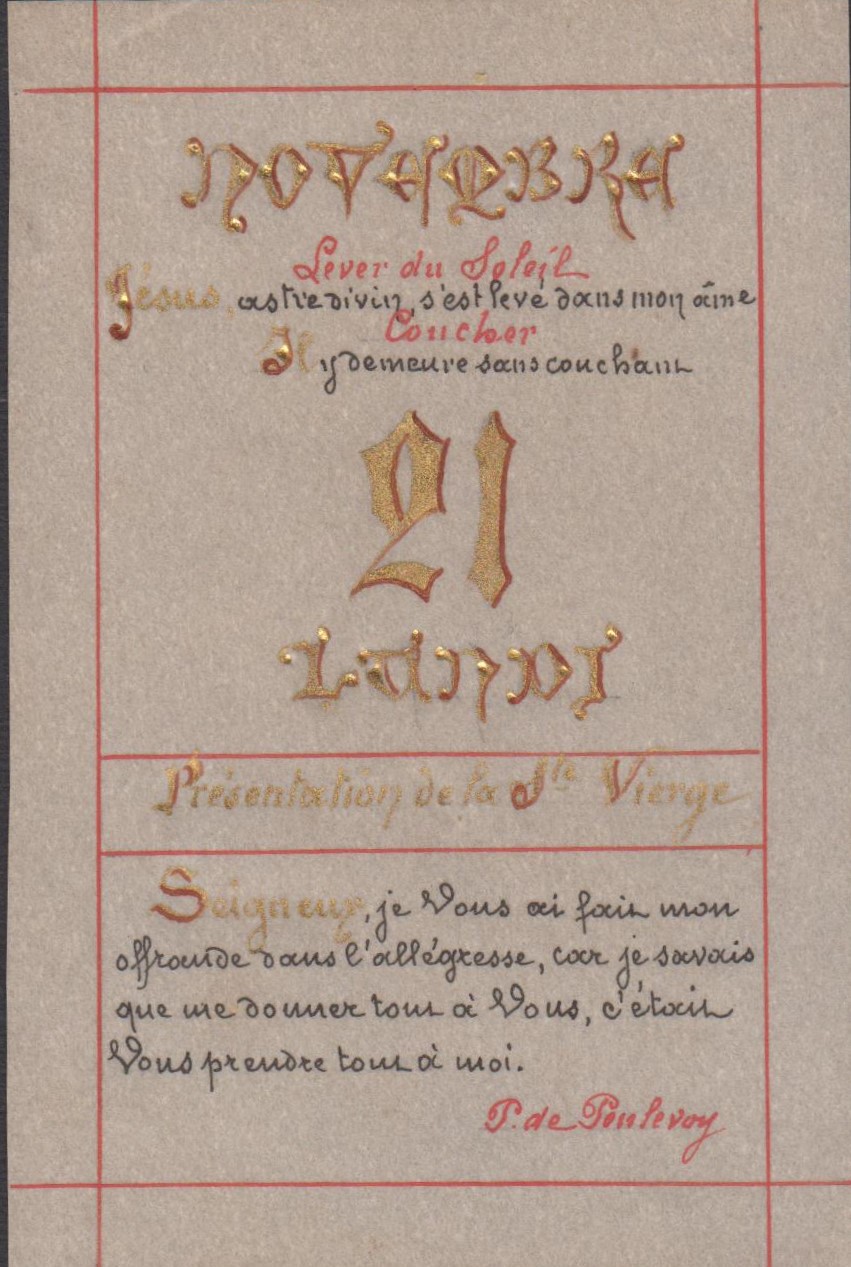 NOVEMBRE
Lever du Soleil
Jésus, astre divin, s'est levé dans mon âme
Coucher
Il y demeure sans couchant
21
LUNDI
Présentation de la Ste Vierge
Seigneur, je Vous ai fait mon
offrande dans l'allégresse, car je savais
que me donner tout à Vous, c'était
Vous prendre tout à moi.
P. de Ponlevoy